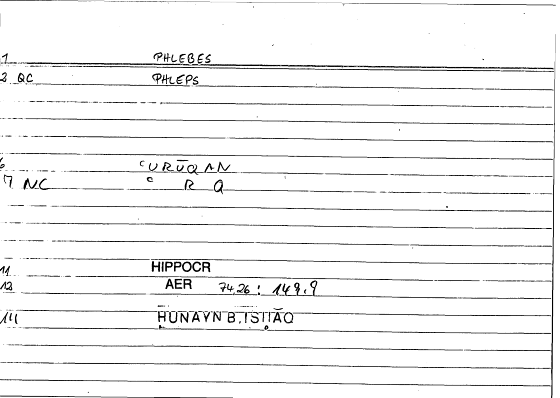 1 PHLEBES
2 QC PHLEPS
6 ʿURŪQAN
7 NC ʿ R Q
11 HIPPOCR
12 AER 74,26 : 149,9
14 ḤUNAYN B. ISḤĀQ